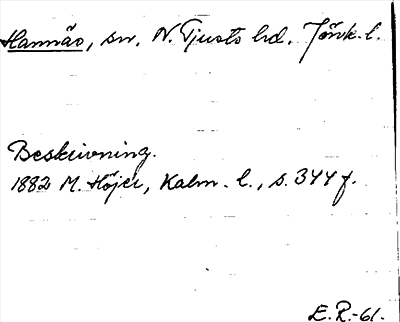 Hannäs, sn. N. Tjusts hd. Jönk. l.
Beskrivning.
1882 M. Höjer, Kalm. l., s. 344 f.
E.R.-61.